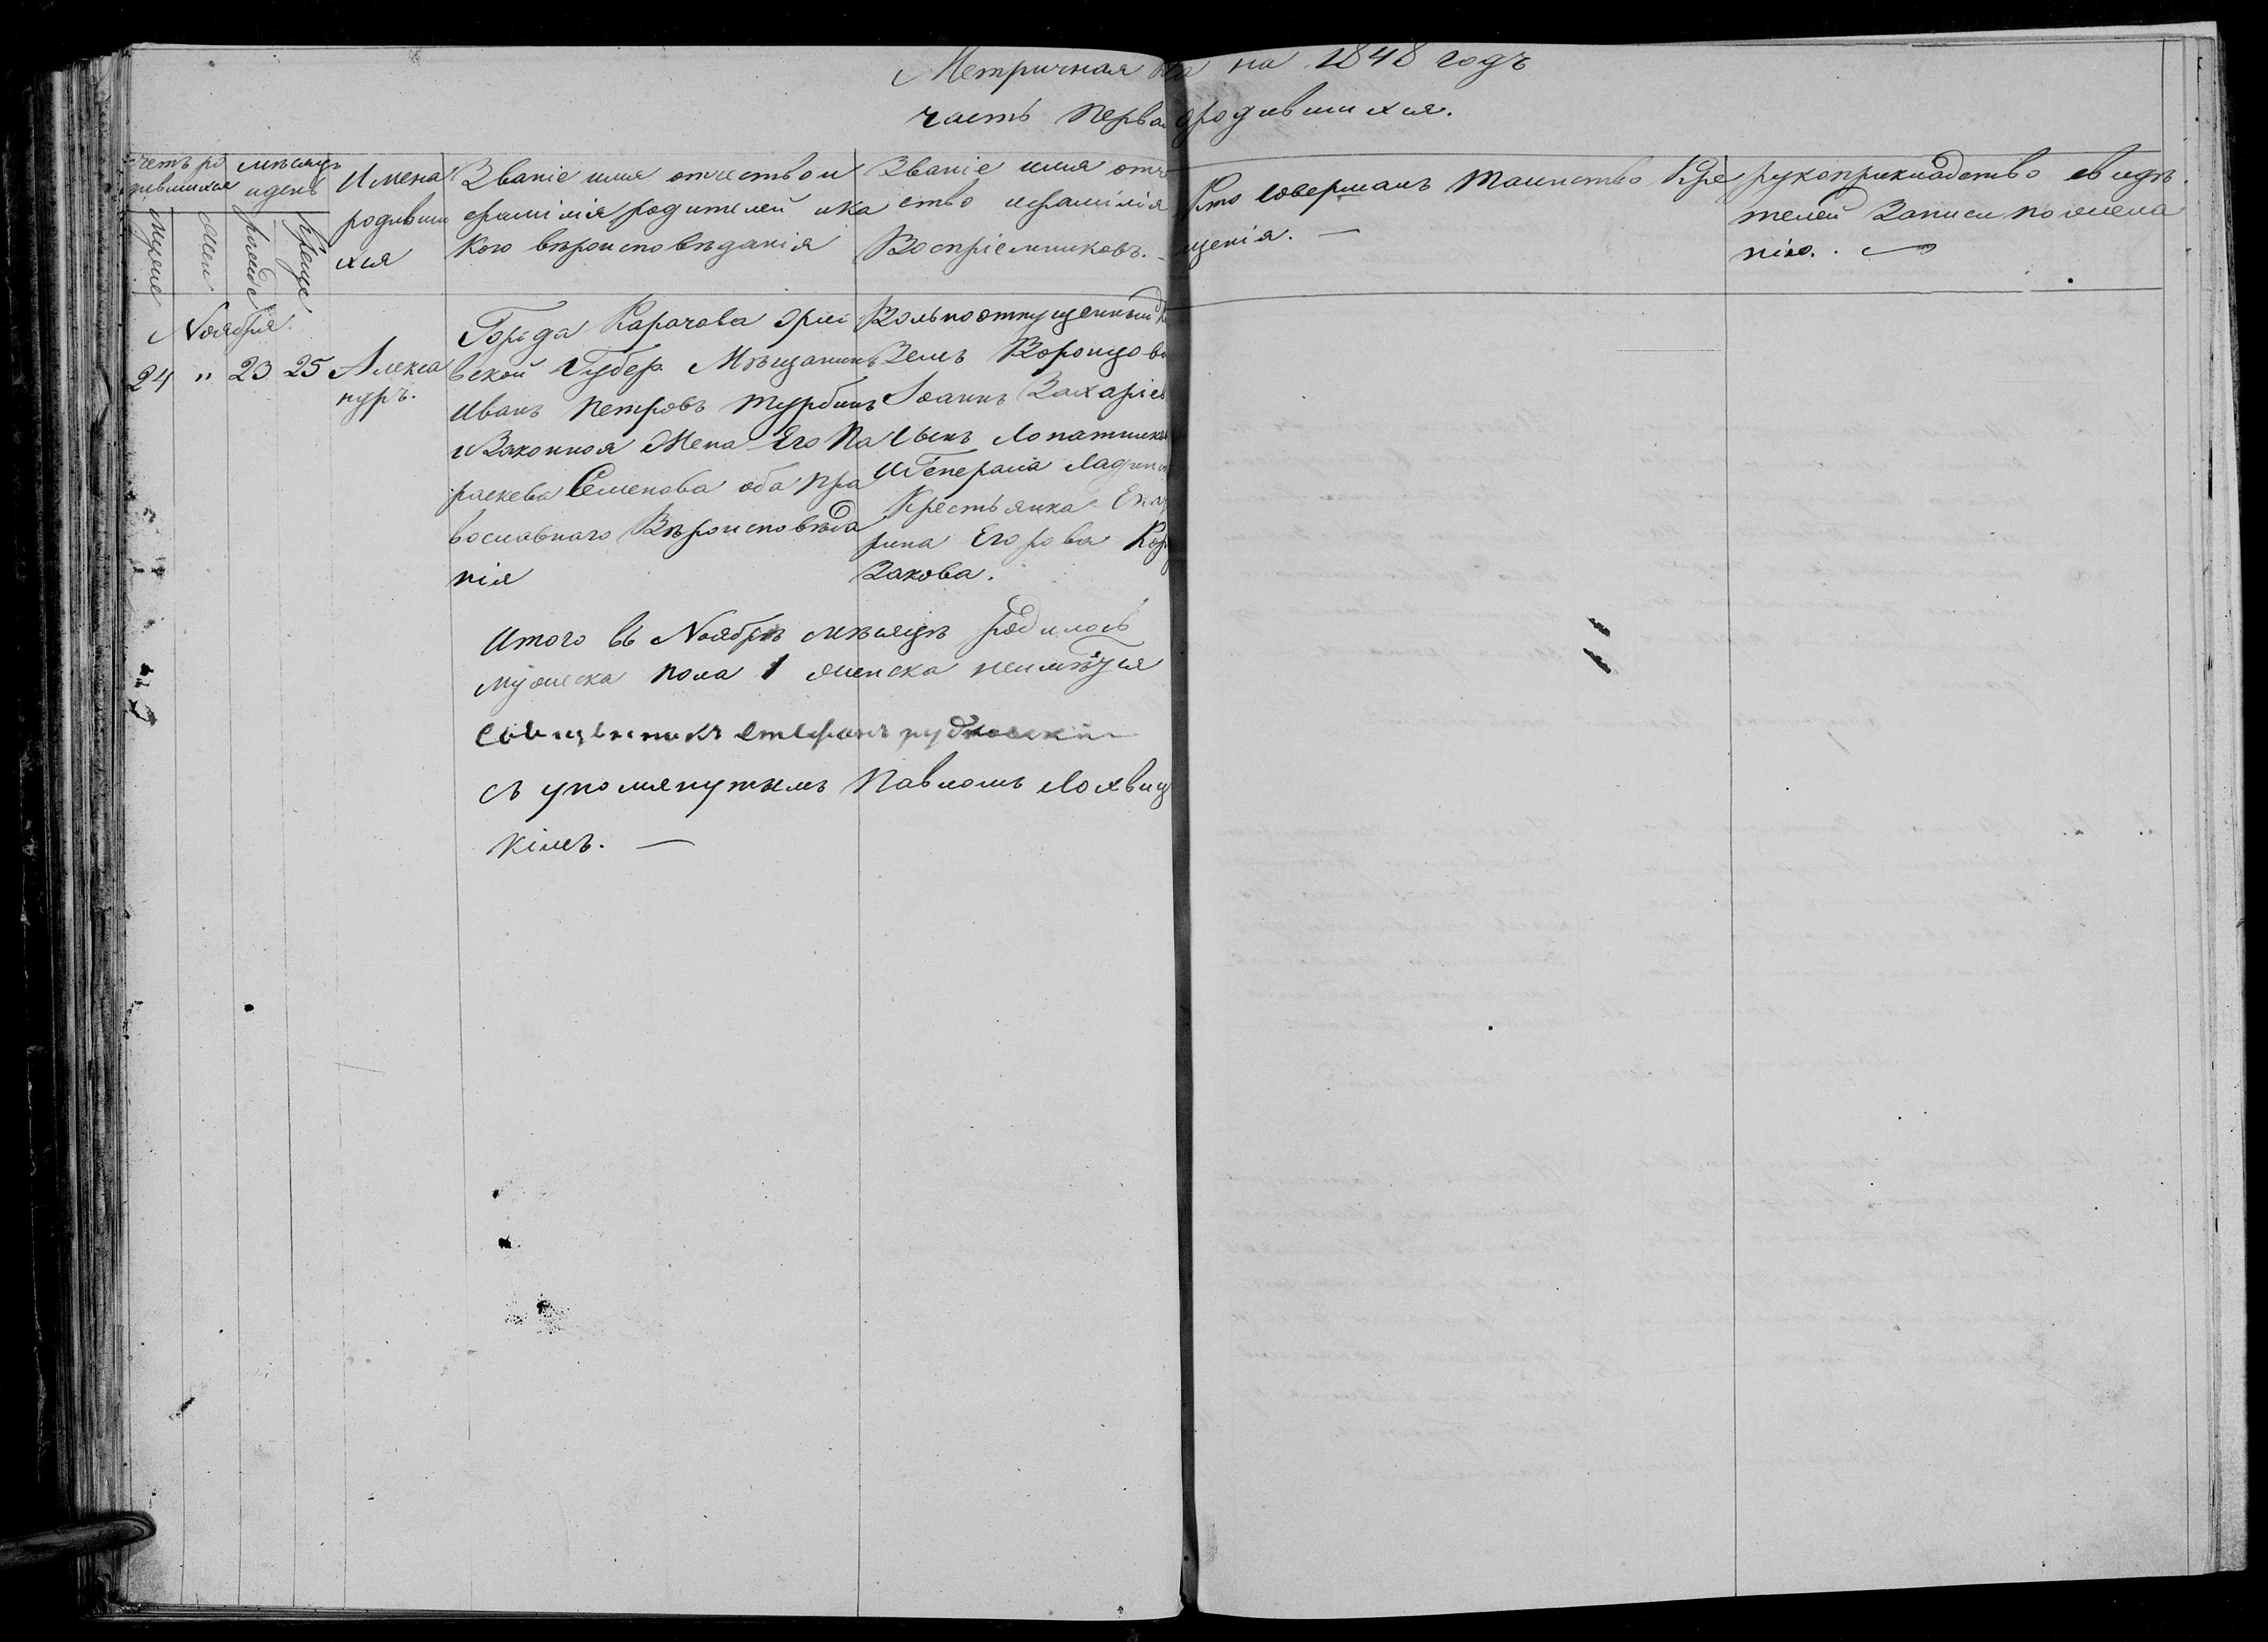 Метричная на 1848 годъ
часть Первая о родившихся.
четъ ро
дившихся
мѣсяцъ
и день
муже
жен
рожде
креще
Имена
родивши
хся
Званіе имя отчество и
фамилія родителей и ка
кого вѣроисповѣданія
Званіе имя отче
ство и фамилія
Воспріемниковъ.
Кто совершалъ таинство Кре
щенія. —
рукоприкладство свидѣ
телей записи по жела
нію.
Ноября.
24 " 23 25
Алекса
ндръ.
Города Карачова Орло
вской Губер. Мѣщанинъ
Иванъ Петровъ Турбинъ
и Законная Жена Его Па
раскева Семенова оба пра
вославнаго Вѣроисповѣда
нія
Вольноотпущенный
Іоаннъ Захаріев
Сынъ Лопатинъ
и Генерала Ладин
Крестьянка Екат
рина Егорова
Закова.
Итого въ Ноябрѣ мѣсяцѣ родилось
мужеска пола 1 женска неимѣется
Священникъ Стефанъ Рудковскій
съ упомянутымъ Павломъ Лохвиц
кімъ. —